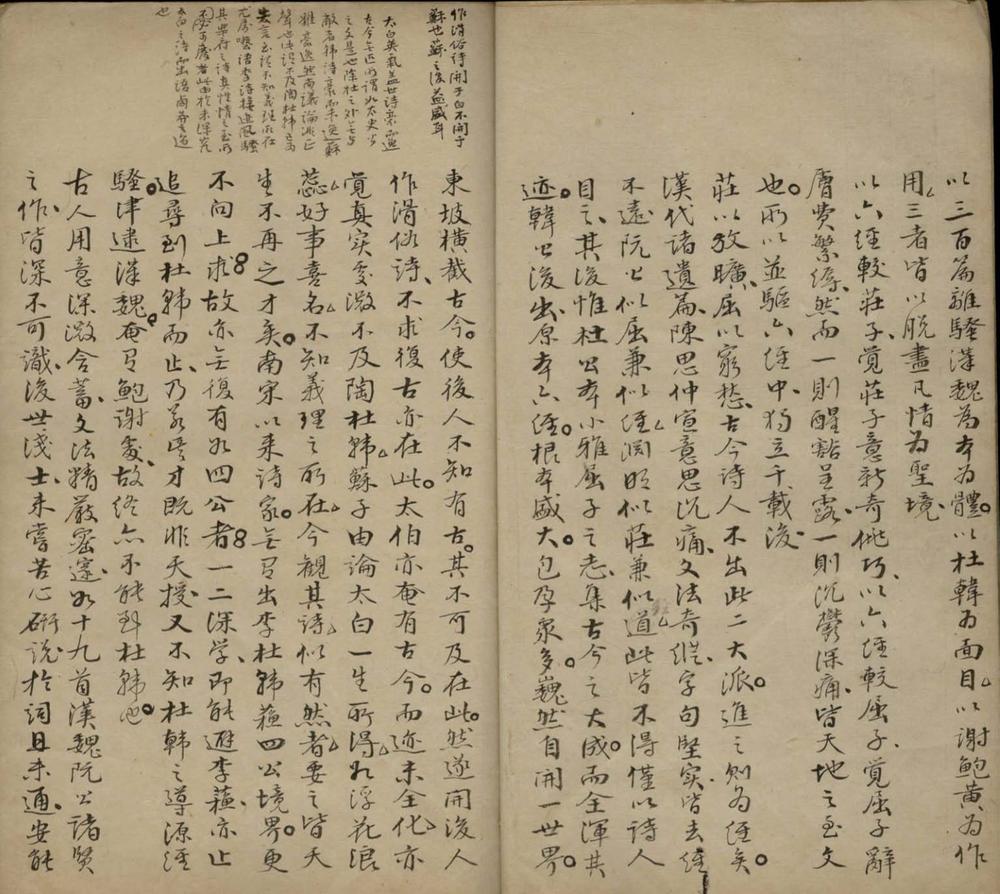 以三百篇離騷漢魏為本為體。以杜韓為面目。以謝鮑黃為作
用。三者皆以脫盡凡情為聖境、
以六經較莊子、覺莊子意新奇佻巧、以六經較屈子、覺屈子辭
膚費繁縟、然而一則醒豁呈露、一則沉鬱深痛、皆天地之至文
也。所以並驅六經中、獨立千載後、
莊以放曠、屈以窮愁、古今詩人不出此二大派。進之則為經矣。
漢代諸遺篇、陳思仲宣意思沉痛、文法奇縱、字句堅實、皆去經
不遠、阮公似屈兼似經、淵明似莊兼似道、此皆不得僅以詩人
目之、其後惟杜公本小雅屈子之志、集古今之大成。而全渾其
迹。韓公後出、原本六經。根本盛大。包孕眾多。巍然自開一世界。
東坡橫截古今。使後人不知有古。其不可及在此。然遂開後人
作滑俗詩、不求復古亦在此。太白亦奄有古今。而迹未全化、亦
覺真實處微不及陶杜韓。蘇子由論太白一生所得、如浮花浪
蕊、好事喜名、不知義理之所在、今觀其詩、似有然者、要之皆天
生不再之才矣。南宋以來詩家。無有出李杜韓蘇四公境界。更
不向上求、故亦無復有如四公者、一二深學、即能避李蘇、亦止
追尋到杜韓而止、乃若其才既非天授、又不知杜韓之導源經
騷。津逮漢魏。奄有鮑謝處、故終亦不能到杜韓也。
古人用意深微含蓄、文法精嚴密邃、如十九首漢魏阮公諸賢
之作、皆深不可識、後世淺士、未嘗苦心研說、於詞且未通、安能
作滑俗詩開于白不開于
蘇也蘇之後益盛耳
太白英氣蓋世詩豪
古今無匹所謂如太史公
之文是也除杜之外無與
敵者韓詩豪而未逸蘇
雖豪逸然南議論
聲也決不及陶杜韓
失言至於不知義理所在
尤屬囈語李詩接迹風騷
其樂府之詩真性情之至所
不
太白之詩而出語
也